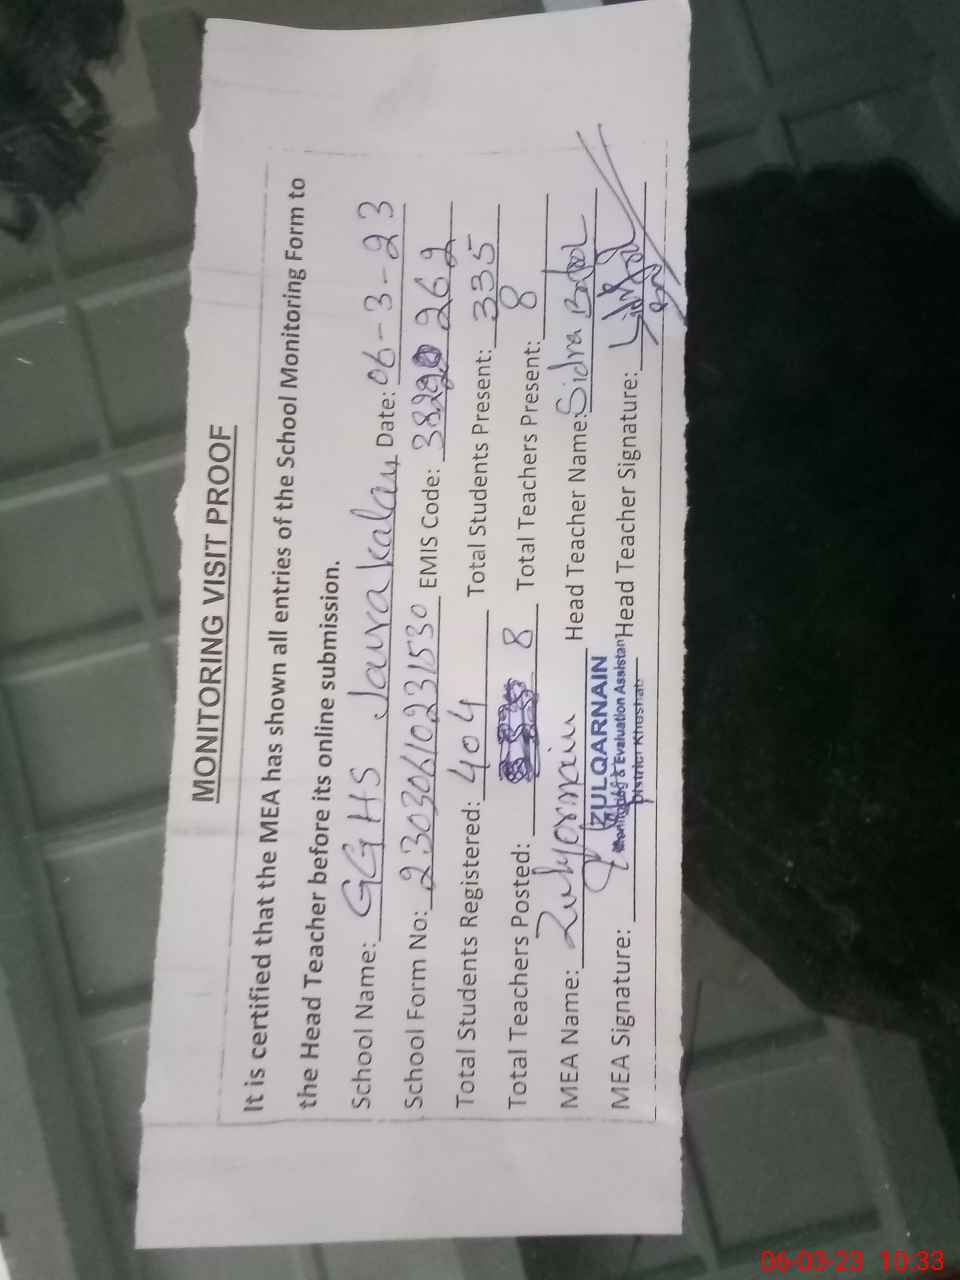 MONITORING VISIT PROOF
It is certified that the MEA has shown all entries of the School Monitoring Form to
the Head Teacher before its online submission.
School Name: GGHS Jaura kalan Date: 06-3-23
School Form No: 23030610231530 EMIS Code: 262
Total Students Registered: 404 Total Students Present: 335
Total Teachers Posted: 8 Total Teachers Present: 8
MEA Name: Zulqarnain Head Teacher Name: Sidra
ZULQARNAIN
Monitoring & Evaluation Assistan
District Khushab
MEA Signature: Head Teacher Signature:
06-03-23 10:33